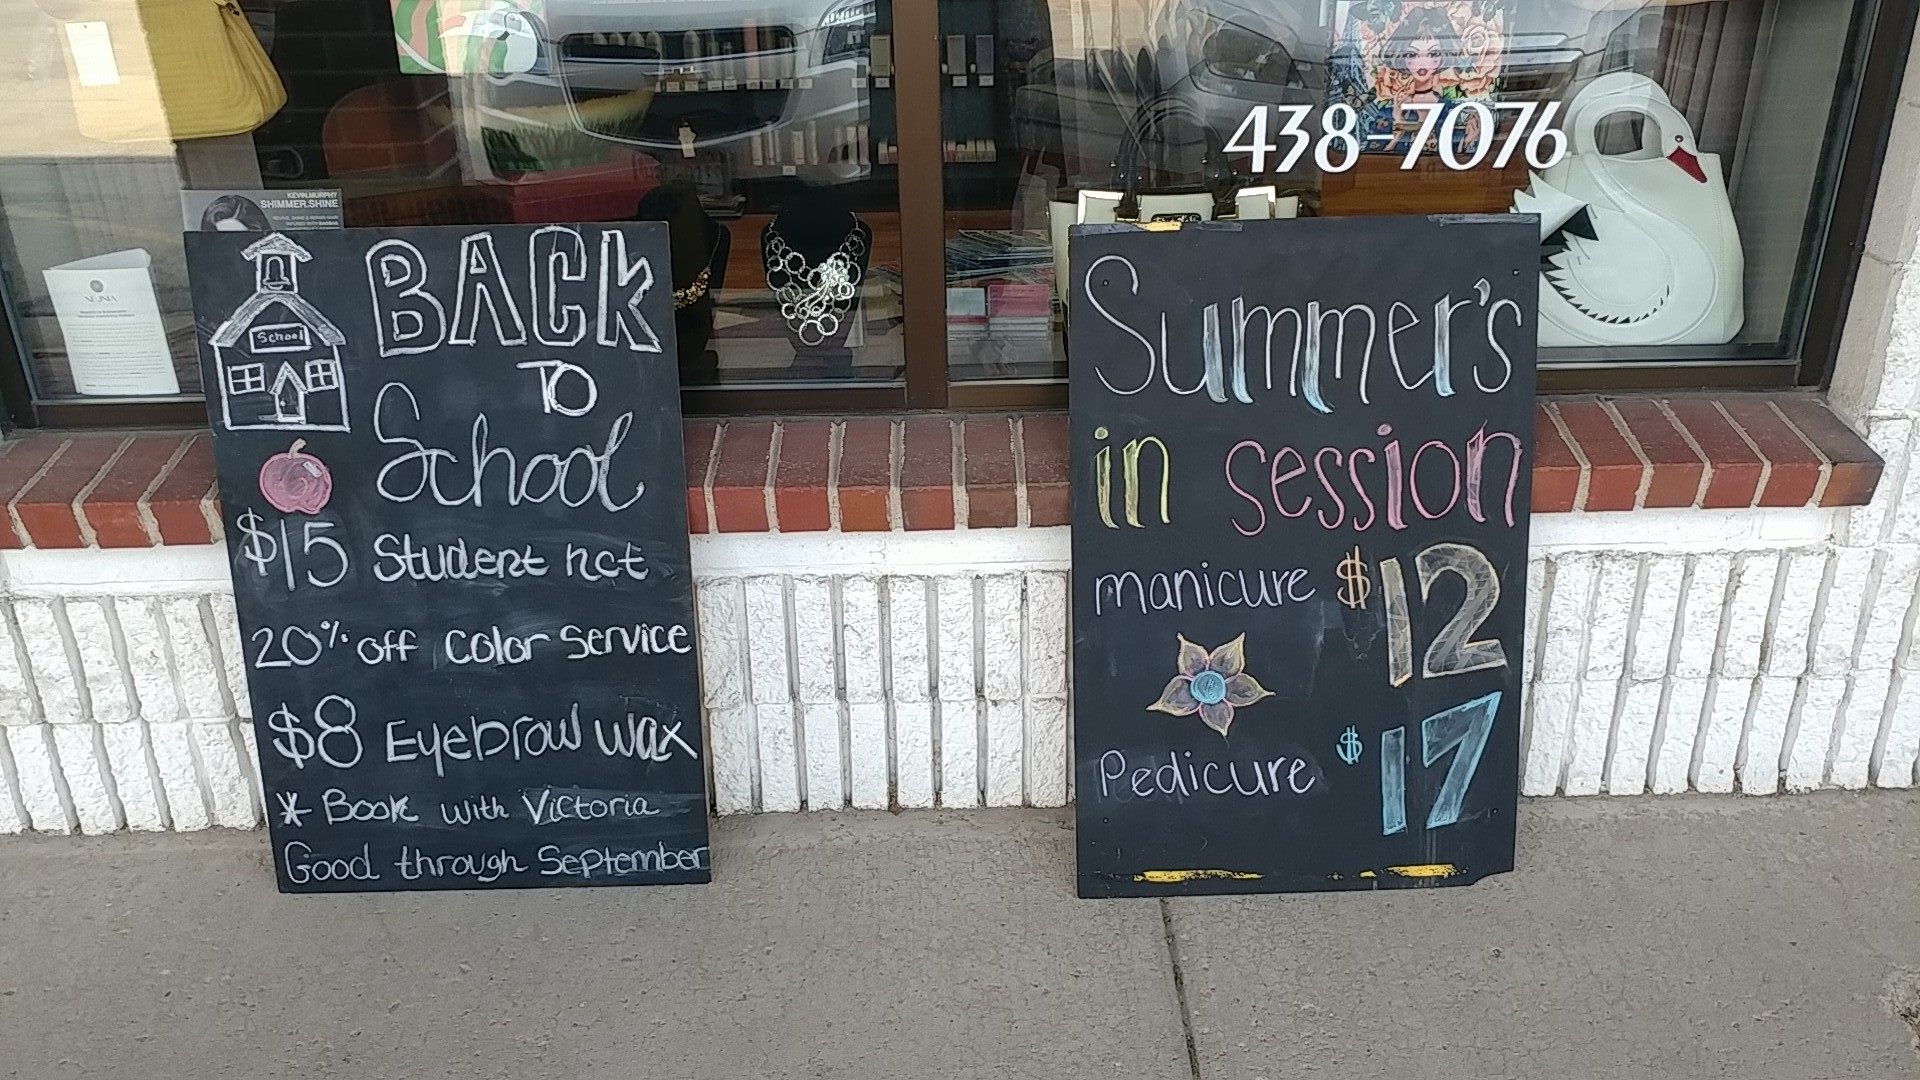 438-7076
KEVIN.MURPHY
SHIMMER.SHINE
School
BACK
TO
School
$15 Student hct
20% off color service
$8 Eyebrow wax
* Book with Victoria
Good through September
Summer's
in session
manicure $12
Pedicure $17